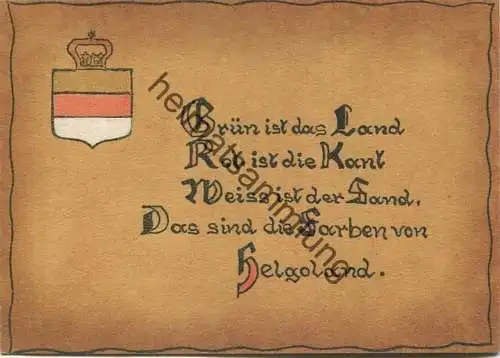 Grün ist das Land
Rot ist die Kant
Weiss ist der Sand,
Das sind die Farben von
Helgoland.
heimatsammlung